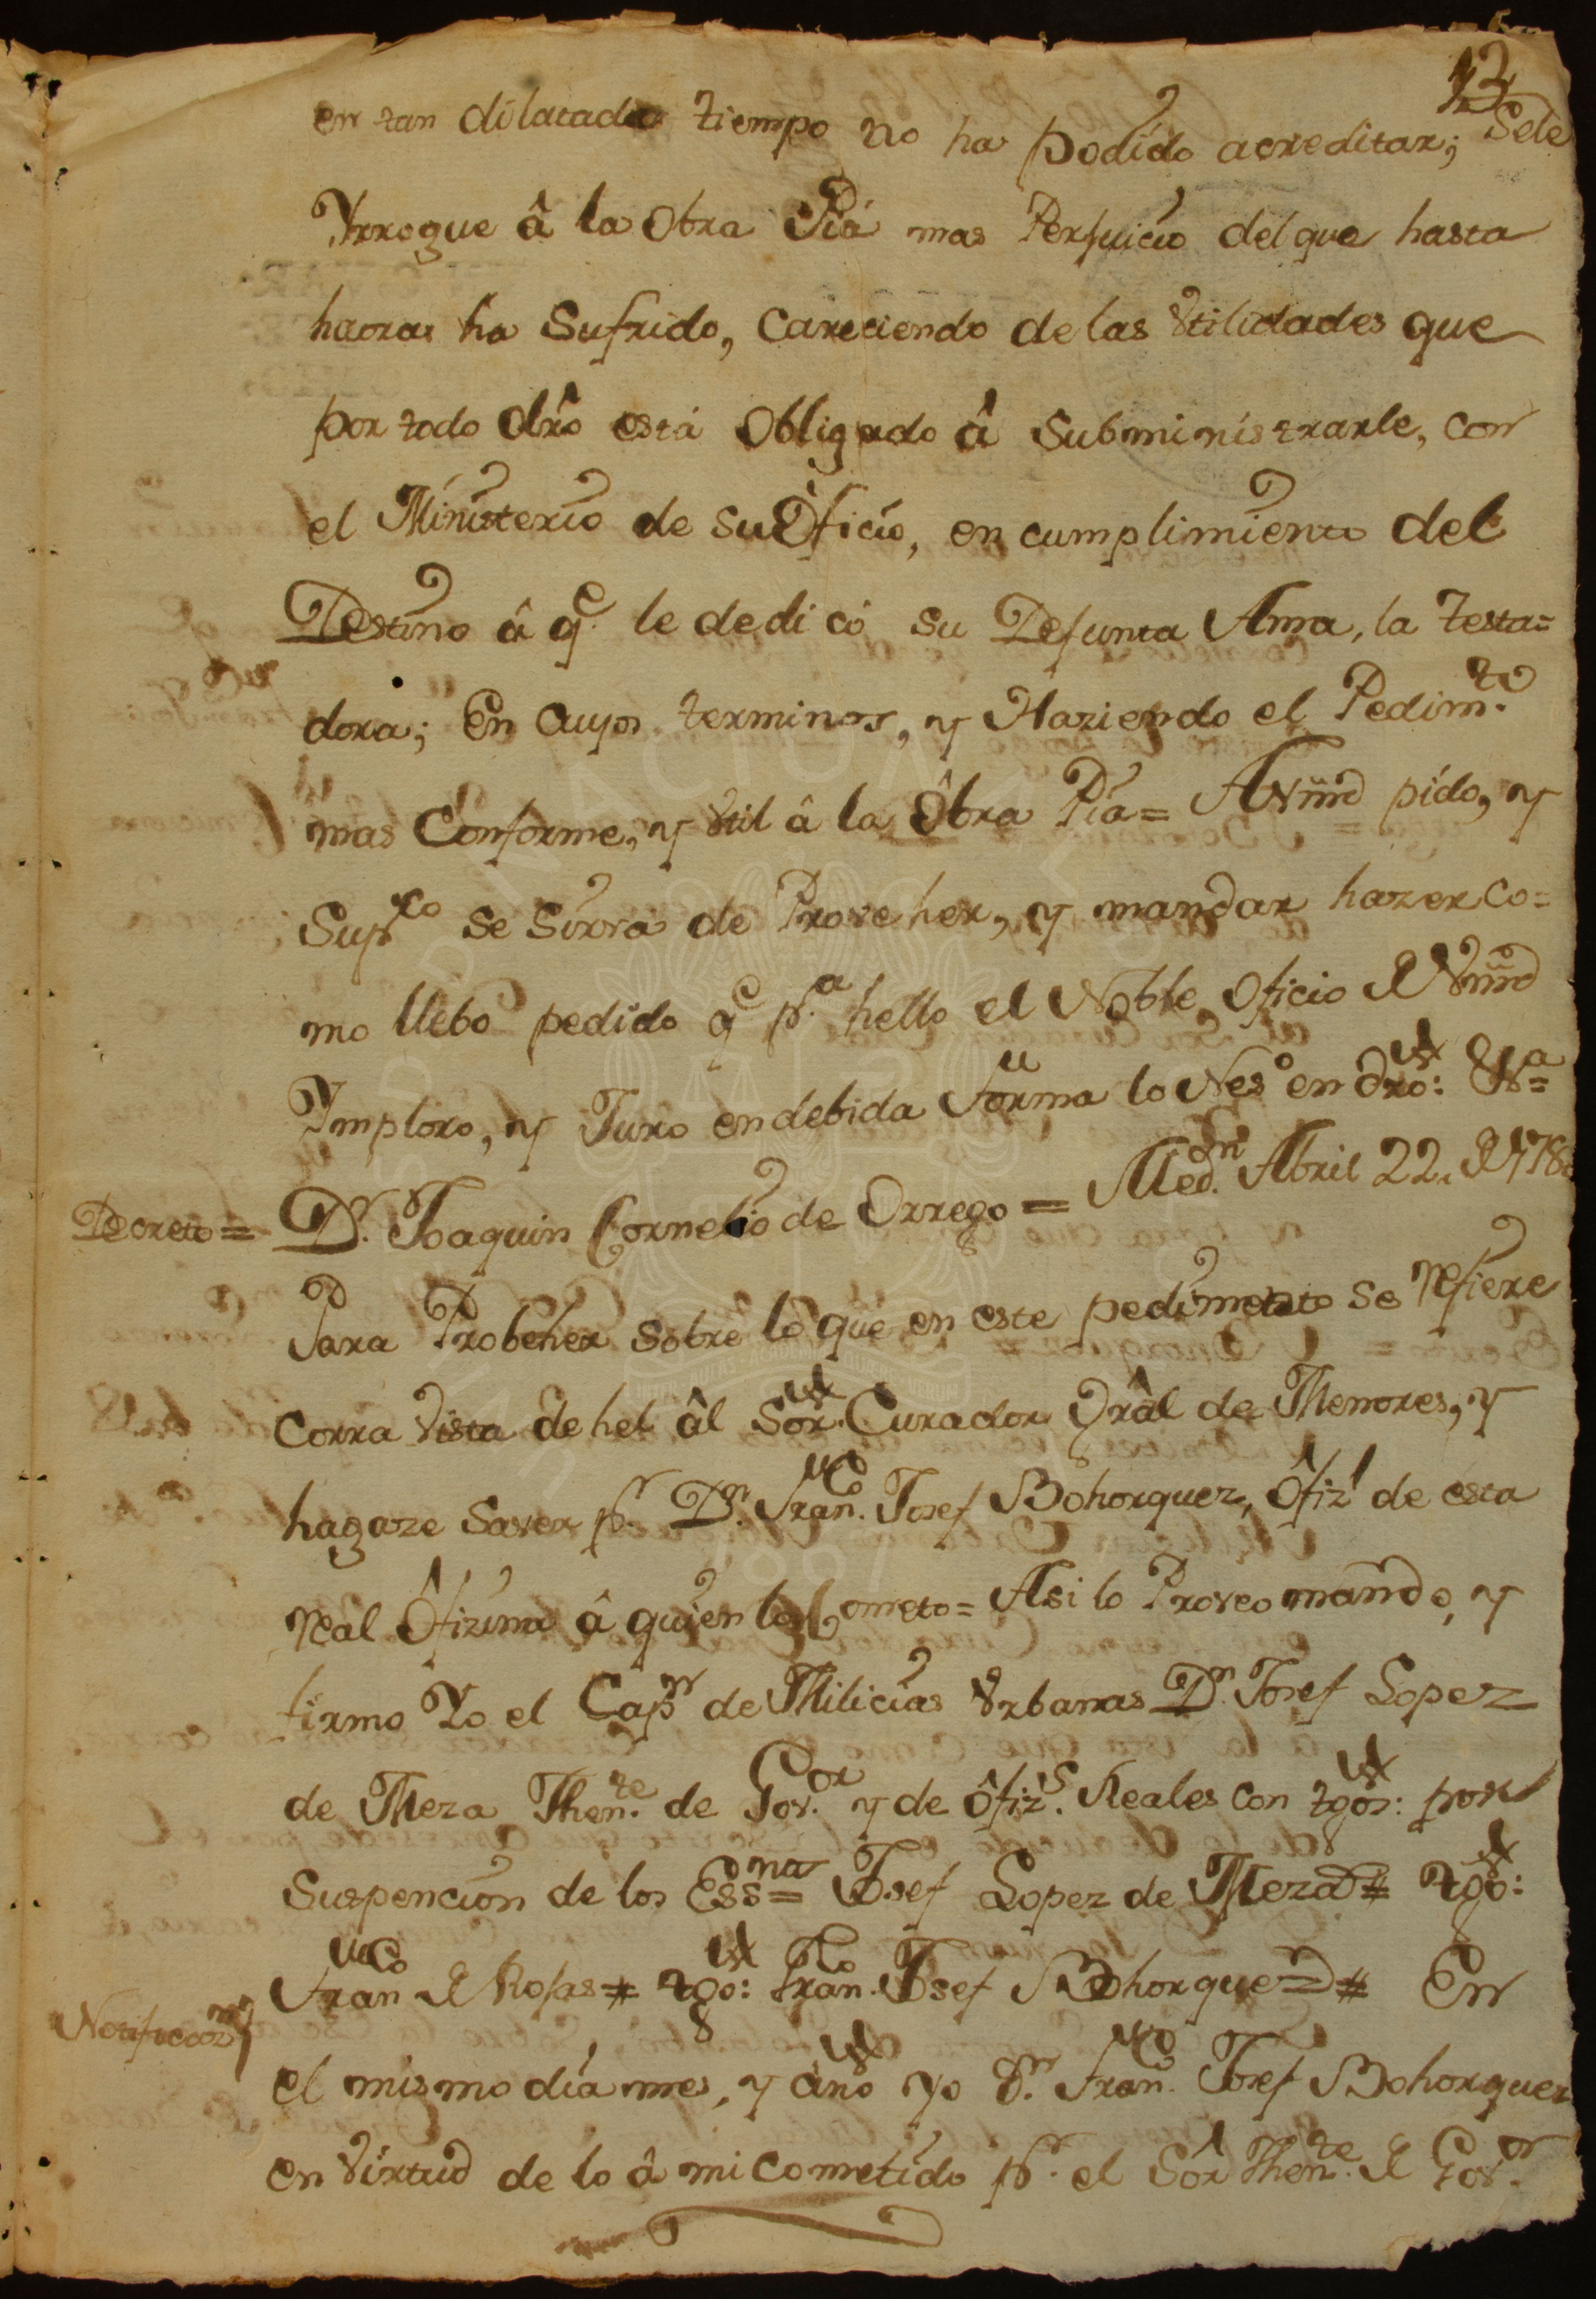 13
en tan dilatado tiempo no ha podido acreditar; Sele
Yrrogue â la Obra Piá mas Perjuicio del que hasta
haora ha Sufrido, Careciendo de las Vtilidades que
por todo dr̂o está Obligado â Subministrarle, con
el Ministerio de su Oficio, en cumplimiento del
Destino â q.e le dedicó su Defunta Ama, la Testa=
dora; En Cuyos terminos, y Haziendo el Pedim.to
mas Conforme, y Vtil â la Ôbra Pia= A Vmd pido, y
Supp.co se Sirva de Proveher, y mandar hazer co=
mo llebo pedido q.e p.a hello el Noble Oficio de Vmd
Ymploro, y Juro en debida Forma lo Nes.o en dro: V.a=
Decreto= D.r Joaquin Cornelio de Orrego = Med.n Abril 22. de 178
Para Probeher sobre lo que en este pedimento se refiere
Corra Vista de hel âl Sor. Curador Grâl de Menores, y
hagaze Saver p.r D.n Fran.co Josef Bohorquez, Ôfiz.l de esta
real Ôfizina â quien lo Cometo= Asi lo Proveo mando, y
firmo Yo el Cap.n de Milicias Vrbanas D.n Josef Lopez
de Meza Then.te de Gov.or y de Ôfiz.s Reales con tgos: por
Suspencion de los Ess.nos= Josef Lopez de Meza= tgo:
Fran.co de Rojas= tgo: Fran.co Josef Bohorquez= En
Notificaz.on
el mismo día mes, y año yo D.n Fran.co Josef Bohorquez
en Virtud de lo â mi Cometido p.r el Sôr Then.te de Gov.or